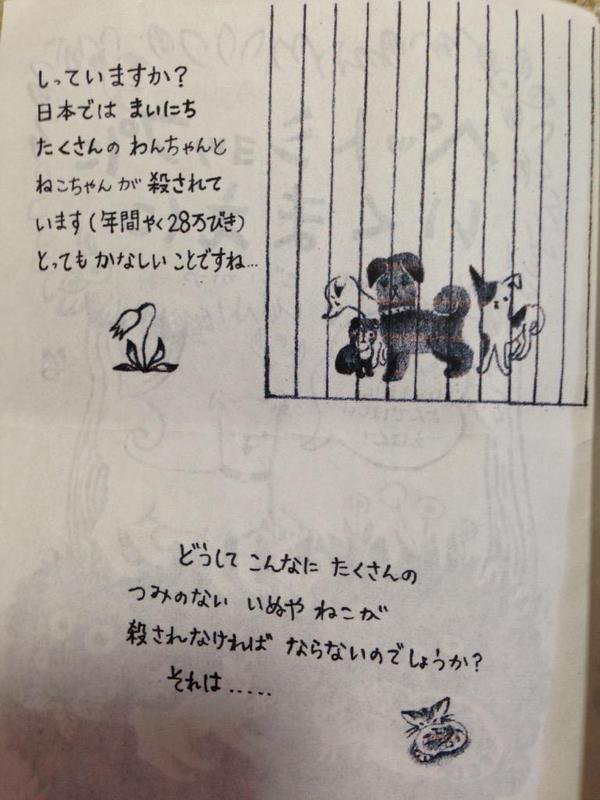 しっていますか?
日本では まいにち
たくさんの わんちゃんと
ねこちゃんが 殺されて
います(年間やく28万びき)
とっても かなしい ことですね…
どうして こんなに たくさんの
つみのない いぬや ねこが
殺されなければ ならないのでしょうか?
それは.....